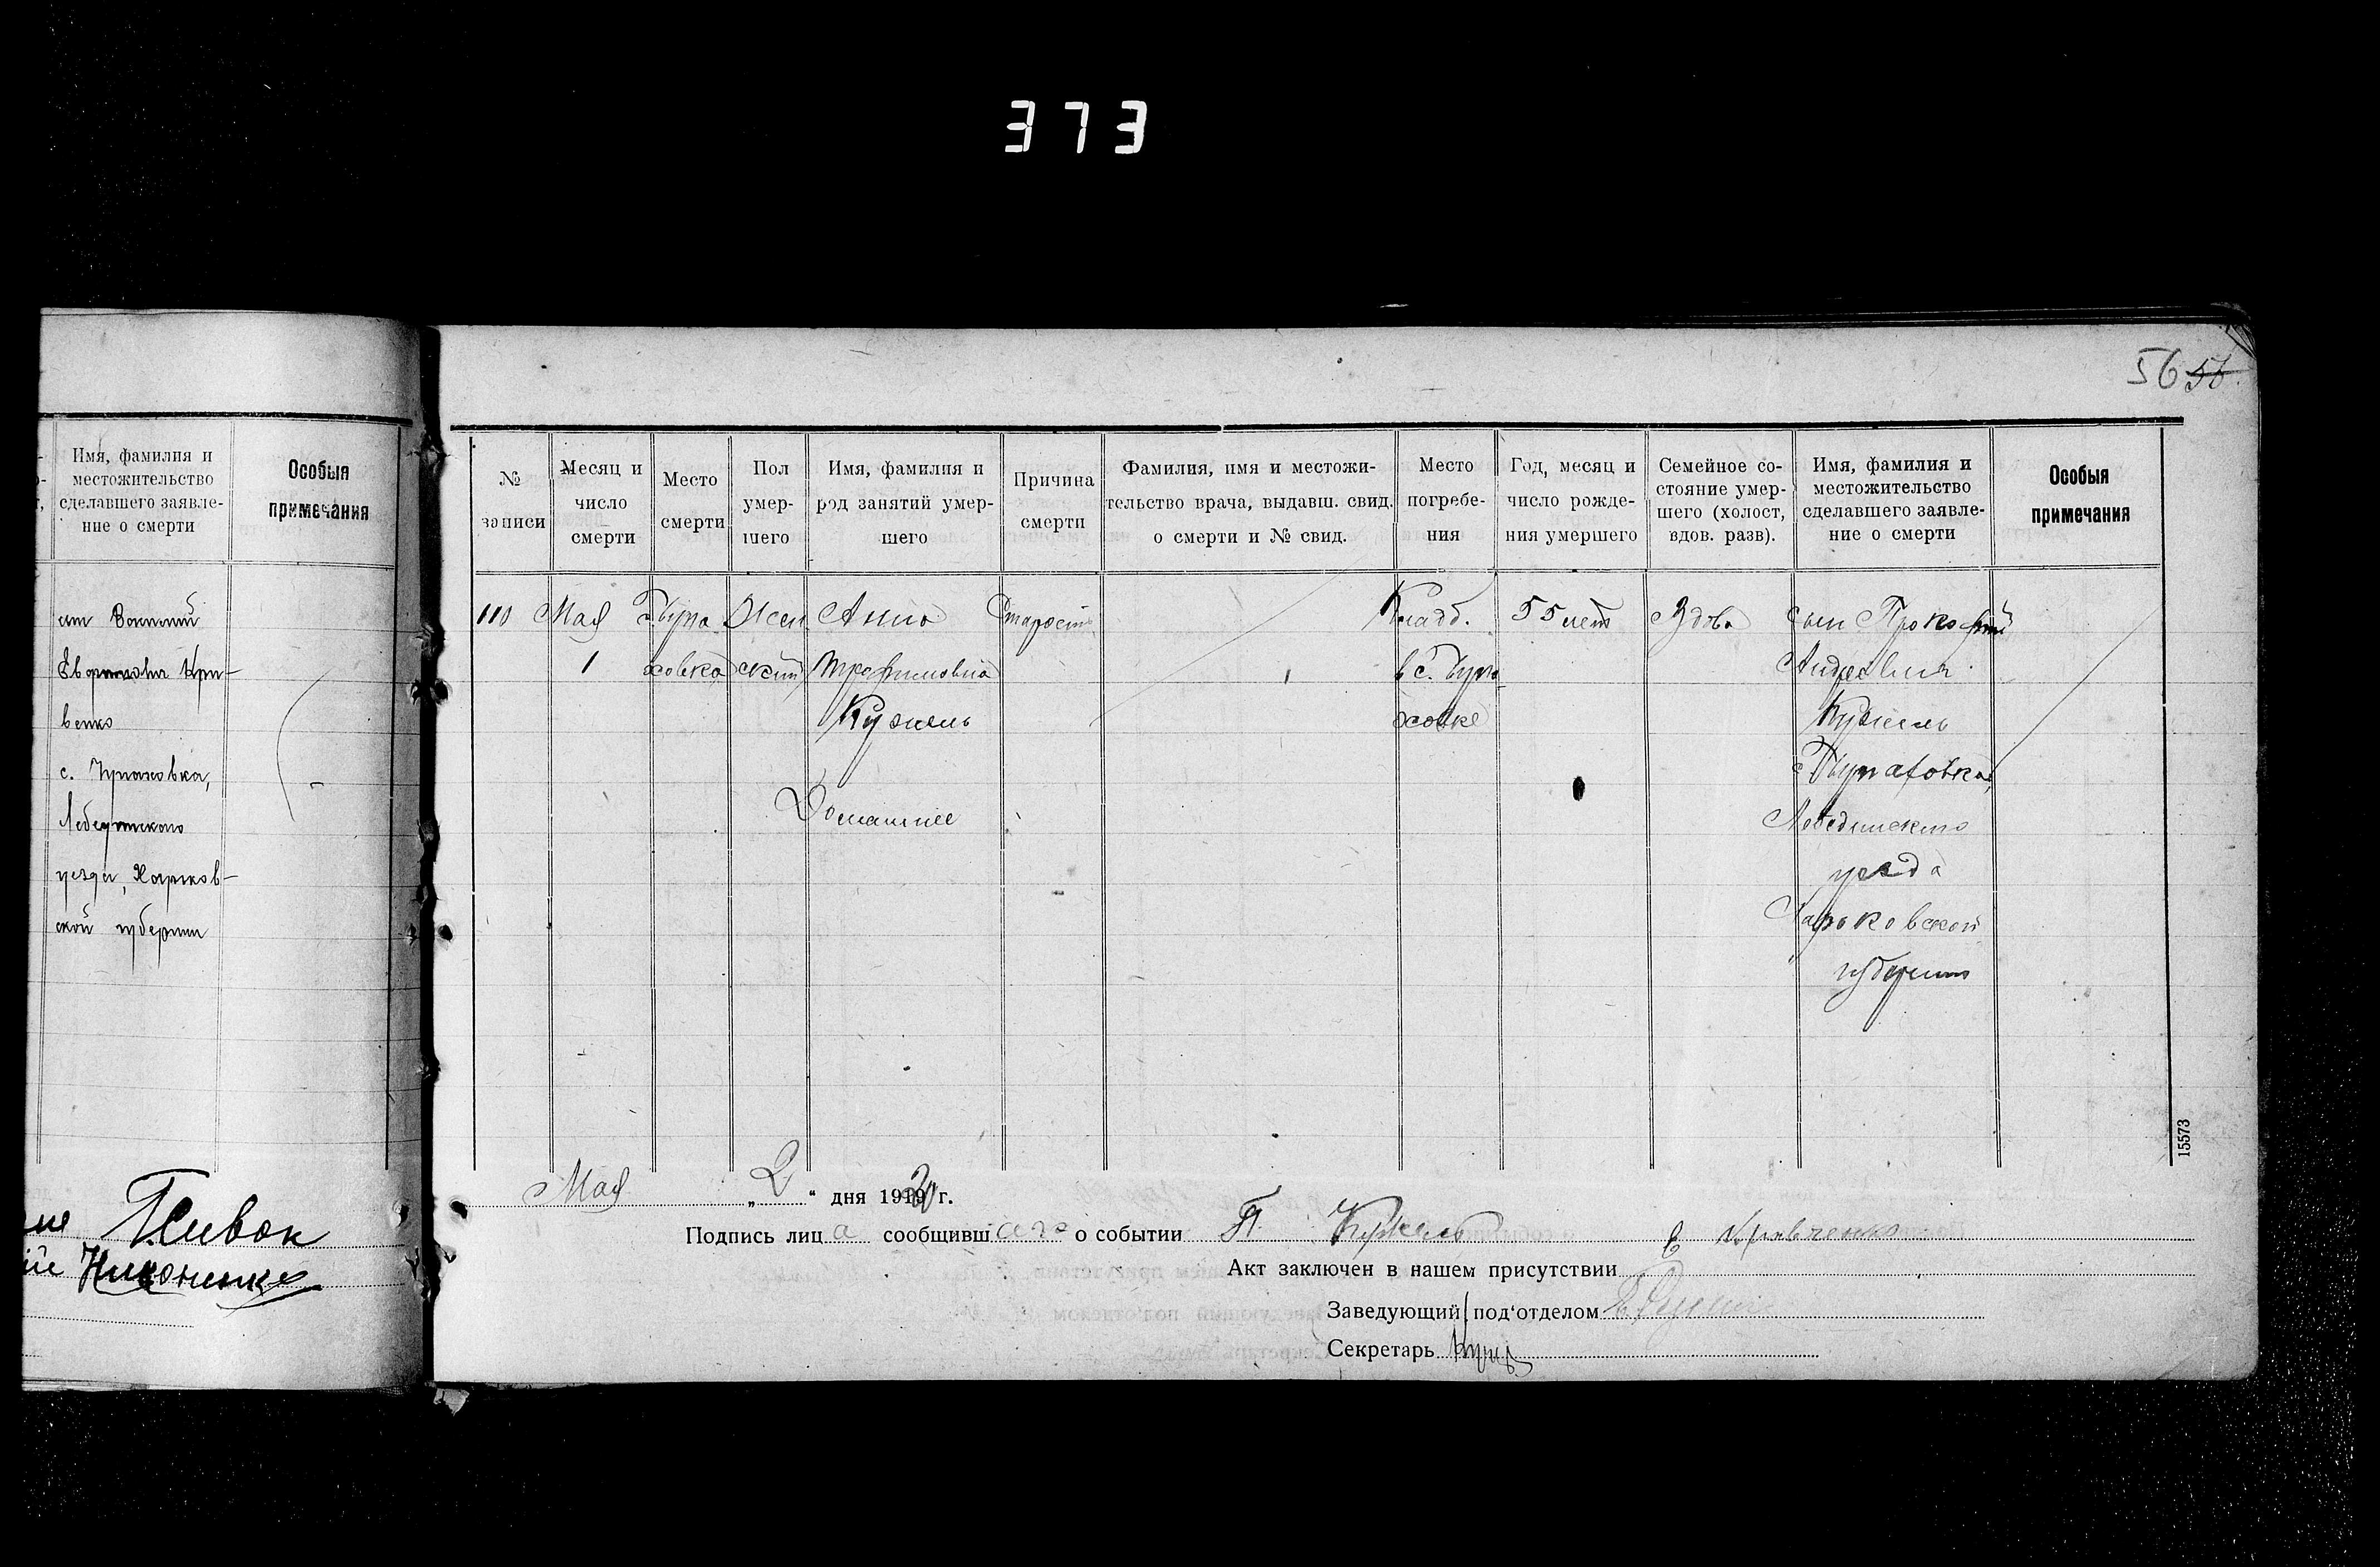 373
56 56.
Имя, фамилия и
местожительство
сделавшего заявле-
ние о смерти
Особыя
примечания
Кри-
венко
с.
Лебединского
уезда, Харьков-
ской губернии
Пивок
Никоненко
№
записи
Месяц и
число
смерти
Место
смерти
Пол
умер-
шего
Имя, фамилия и
род занятий умер-
шего
Причина
смерти
Фамилия, имя и местожи-
тельство врача, выдавш. свид.
о смерти и № свид.
Место
погребе-
ния
Год, месяц и
число рожде-
ния умершего
Семейное со-
стояние умер-
шего (холост,
вдов. разв).
Имя, фамилия и
местожительство
сделавшего заявле-
ние о смерти
Особыя
примечания
110
Мая
1
ховка
Жен
ский
Анна
Трофимовна
Кужель
Домашнее
Старость
Кладб.
в с.
ховке
55 лет
Вдова
сын Прокофий
Кужель
Лебединского
уезда
Харьковской
губернии
15573
Мая „ 2 “ дня 1920 г.
Подпись лица сообщившаго о событии П. Кужель Кравченко
Акт заключен в нашем присутствии
Заведующий под‘отделом
Секретарь